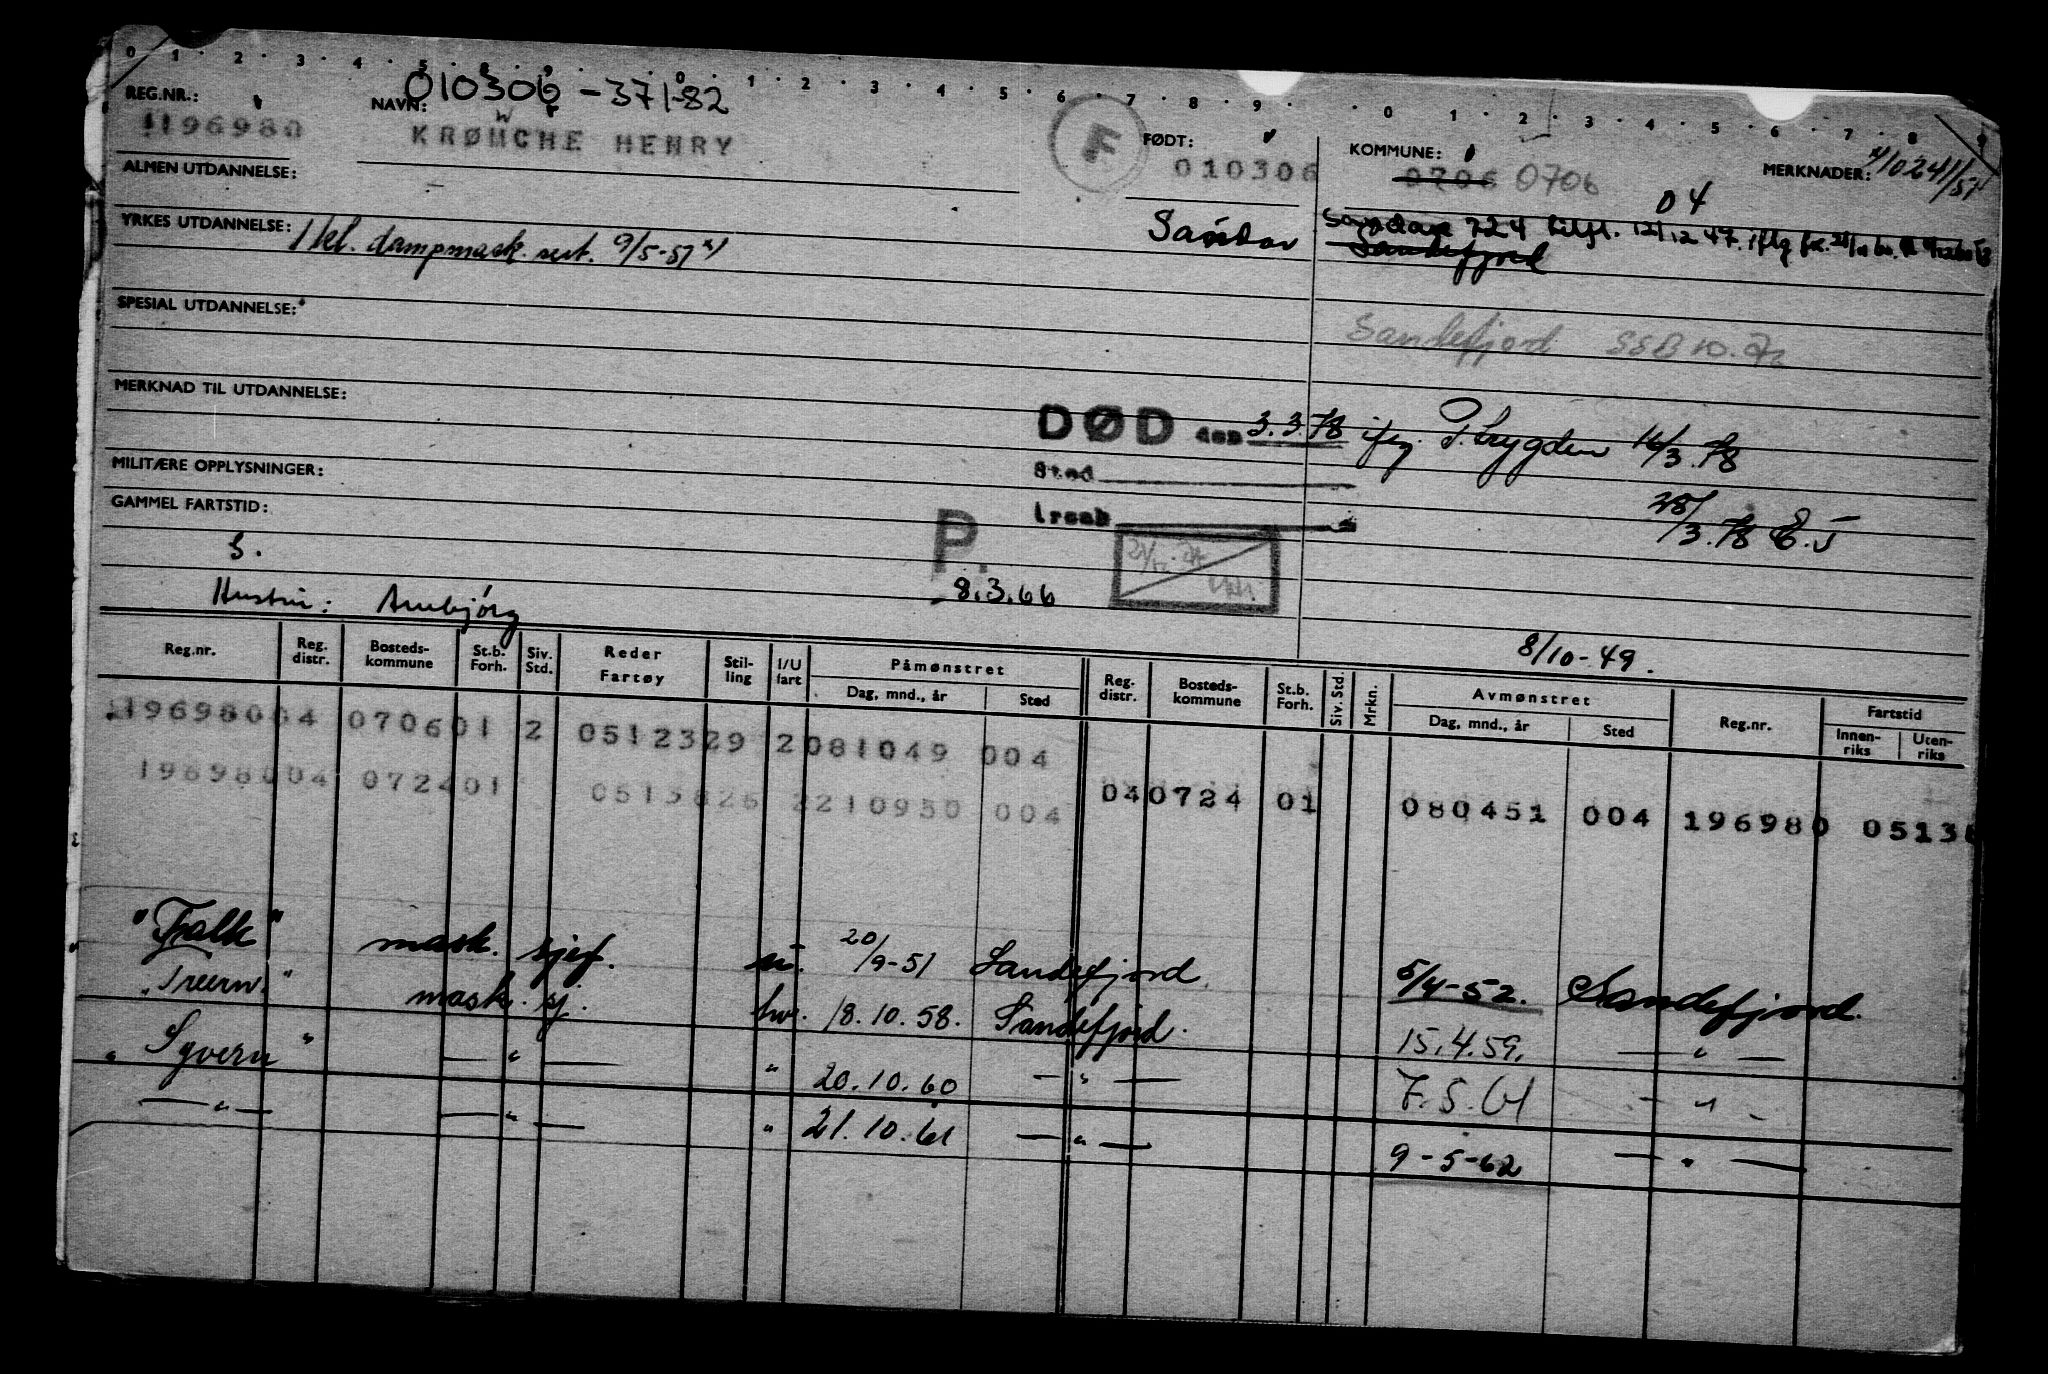 0 1 · 2 · 3 · 4 · 5 · 8 · 9 · 0 · 1 · 2 · 3 · 4 · 5 · 6 · 7 · 8 · 9 · 0 · 1 · 2 · 3 · 4 · 5 · 6 · 7 · 8 · 9
010306 - 37182
REG.NR.: NAVN: FØDT: KOMMUNE: MERKNADER: x) 10241/57
196980 KRØNCHE HENRY F 010306 0706 0706
w
ALMEN UTDANNELSE: —
04
YRKES UTDANNELSE: 1 kl. dampmask. sert. 9/5-57 x)
Sandar Sandar 724 tilfl. 12/12 47. iflg
Sandefjord
SPESIAL UTDANNELSE:
Sandefjord SSB 10.72
MERKNAD TIL UTDANNELSE:
DØD den 3.3.78 ifg. T.trygden 16/3.78
MILITÆRE OPPLYSNINGER:
Sted
28/3.78 E.J
GAMMEL FARTSTID:
Årsak
S.
P.
8.3.66
Hustru: Annbjørg
8/10-49.
Reg.nr. Reg. distr. Bosteds-kommune St.b. Forh. Siv. Std. Reder Fartøy Stil-ling I/U fart Påmønstret Reg. distr. Bosteds-kommune St.b. Forh. Siv. Std. Mrkn. Avmønstret Reg.nr. Fartstid
Dag, mnd., år Sted Dag, mnd., år Sted Innen-riks Uten-riks
19698004 070601 2 0512329 2 081049 004
19698004 072401 0513826 2 210950 004 04 0724 01 080451 004 196980 05138
"Falk" mask. sjef. u. 20/9-51 Sandefjord. 5/4-52. Sandefjord.
"Treern" mask. sj. hv. 18.10.58. Sandefjord. 15.4.59. — " —
"Syvern" — " — " 20.10.60 — " — 7.5.61 — " —
— " — — " — " 21.10.61 — " — 9-5-62 — " —